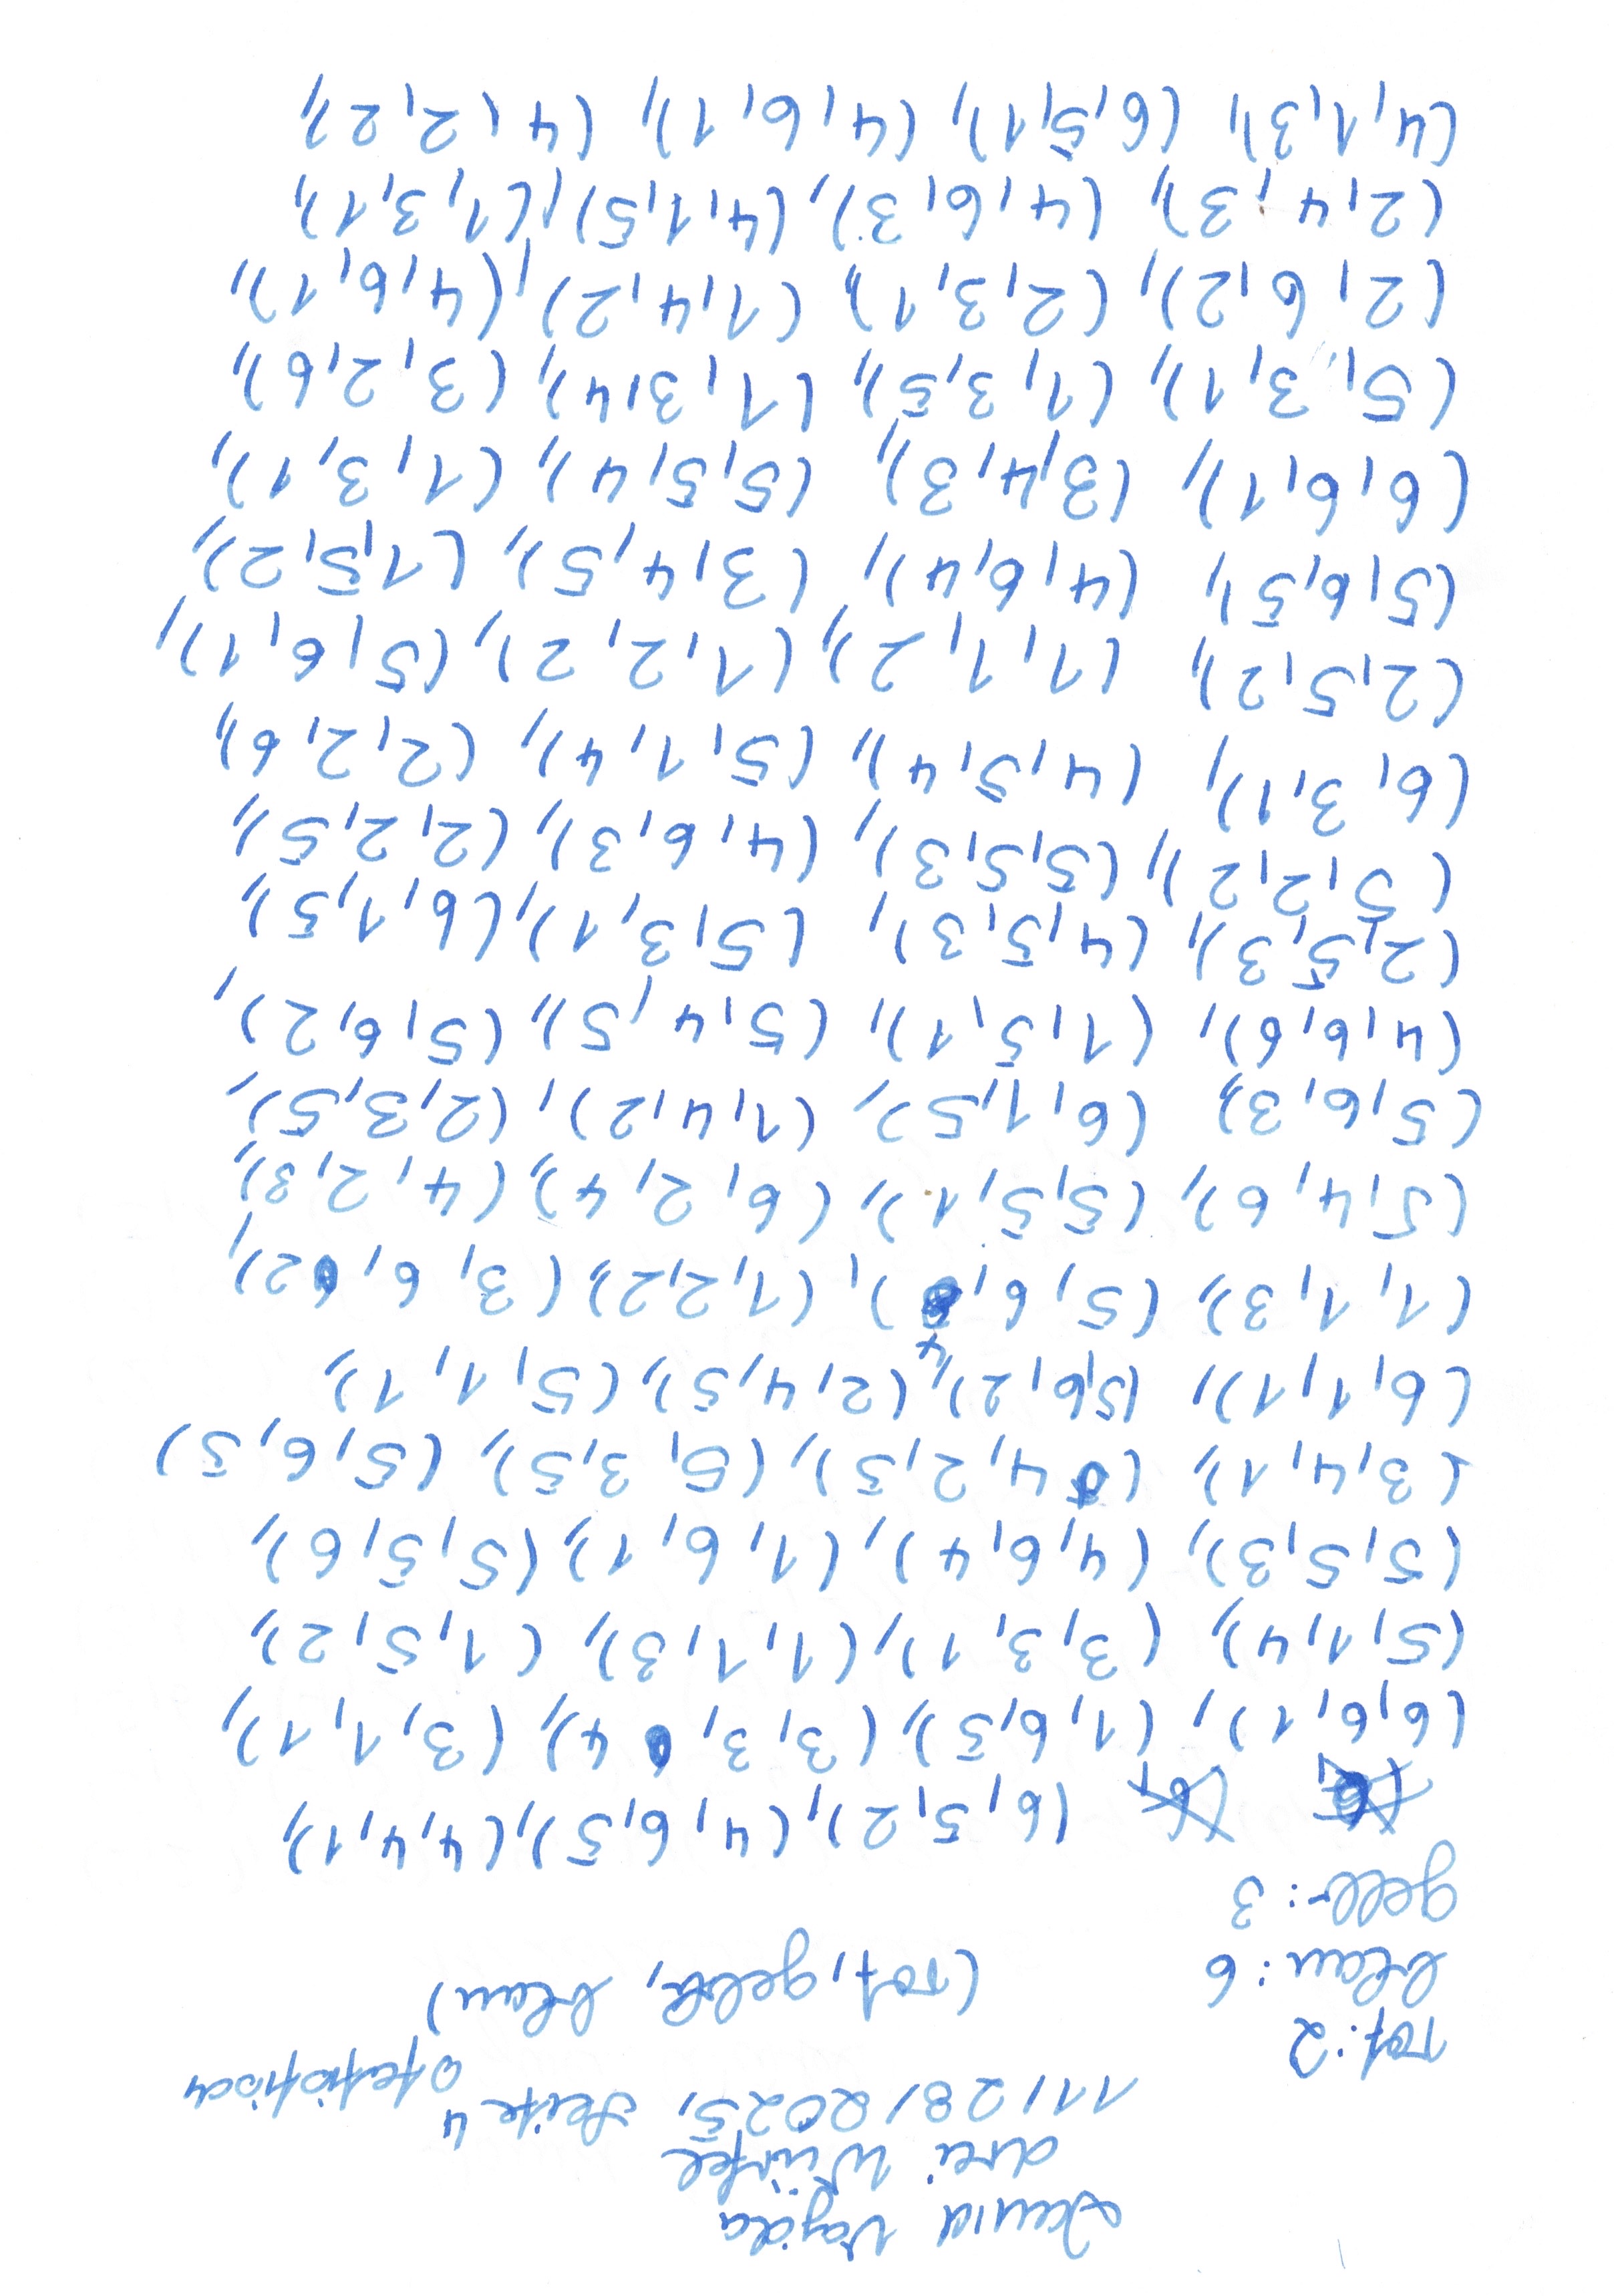 David Vajda
drei Würfel
11/28/2025, Seite 4
rot: 2
blau: 6 (rot, gelb, blau)
gelb: 3
(6,5,2), (4,6,5), (4,4,1),
(6,6,1), (1,6,5), (3,3,4), (3,1,1),
(5,1,4), (3,3,1), (1,1,3), (1,5,2),
(5,5,3), (4,6,4), (1,6,1), (5,5,6),
(3,4,1), (4,2,5), (5,3,5), (5,6,5)
(6,1,1), (5,6,2), (2,4,5), (5,1,1),
(1,1,3), (5,6,4), (1,2,2), (3,6,2),
(5,4,6), (5,5,1), (6,2,4), (4,2,3),
(5,6,3), (6,1,5), (1,4,2), (2,3,5),
(4,6,6), (1,5,1), (5,4,5), (5,6,2),
(2,5,3), (4,5,3), (5,3,1), (6,1,5),
(5,2,2), (5,5,3), (4,6,3), (2,2,5),
(6,3,1), (4,5,4), (5,1,4), (2,2,6),
(2,5,2), (1,1,2), (1,2,2), (5,6,1),
(5,6,5), (4,6,4), (3,4,5), (1,5,2),
(6,6,1), (3,4,3), (5,5,4), (1,3,1),
(5,3,1), (1,3,5), (1,3,4), (3,2,6),
(2,6,2), (2,3,1), (1,4,2), (4,6,1),
(2,4,3), (4,6,3), (4,1,5), (1,3,1),
(4,1,3), (6,5,1), (4,6,1), (4,2,2),